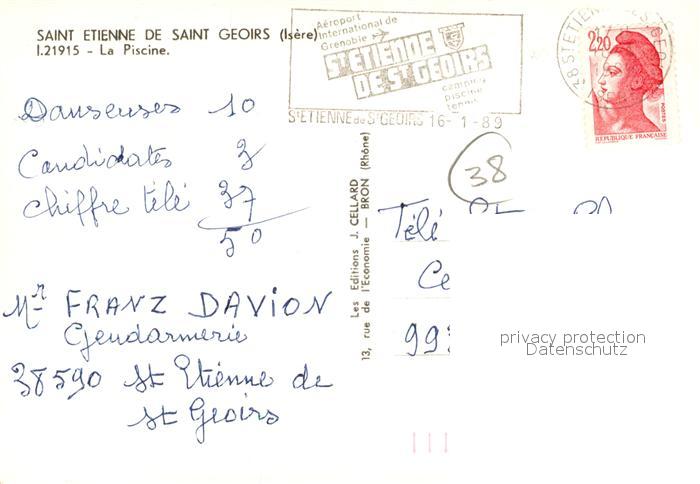 SAINT ETIENNE DE SAINT GEOIRS (Isère)
I.21915 - La Piscine.
Aéroport
international de
Grenoble
ST ETIENNE
DE ST GEOIRS
camping
piscine
tennis
ST ETIENNE de ST GEOIRS 16-1-89
38 ST ETIEN
2,20
POSTES
REPUBLIQUE FRANÇAISE
Danseuses 10
Candidates 3
Chiffre télé 37
50
Mr FRANZ DAVION
Gendarmerie
38590 St Etienne de
St Geoirs
Les Editions J. CELLARD
13, rue de l'Economie — BRON (Rhône)
38
Télé
Ce
99
privacy protection
Datenschutz